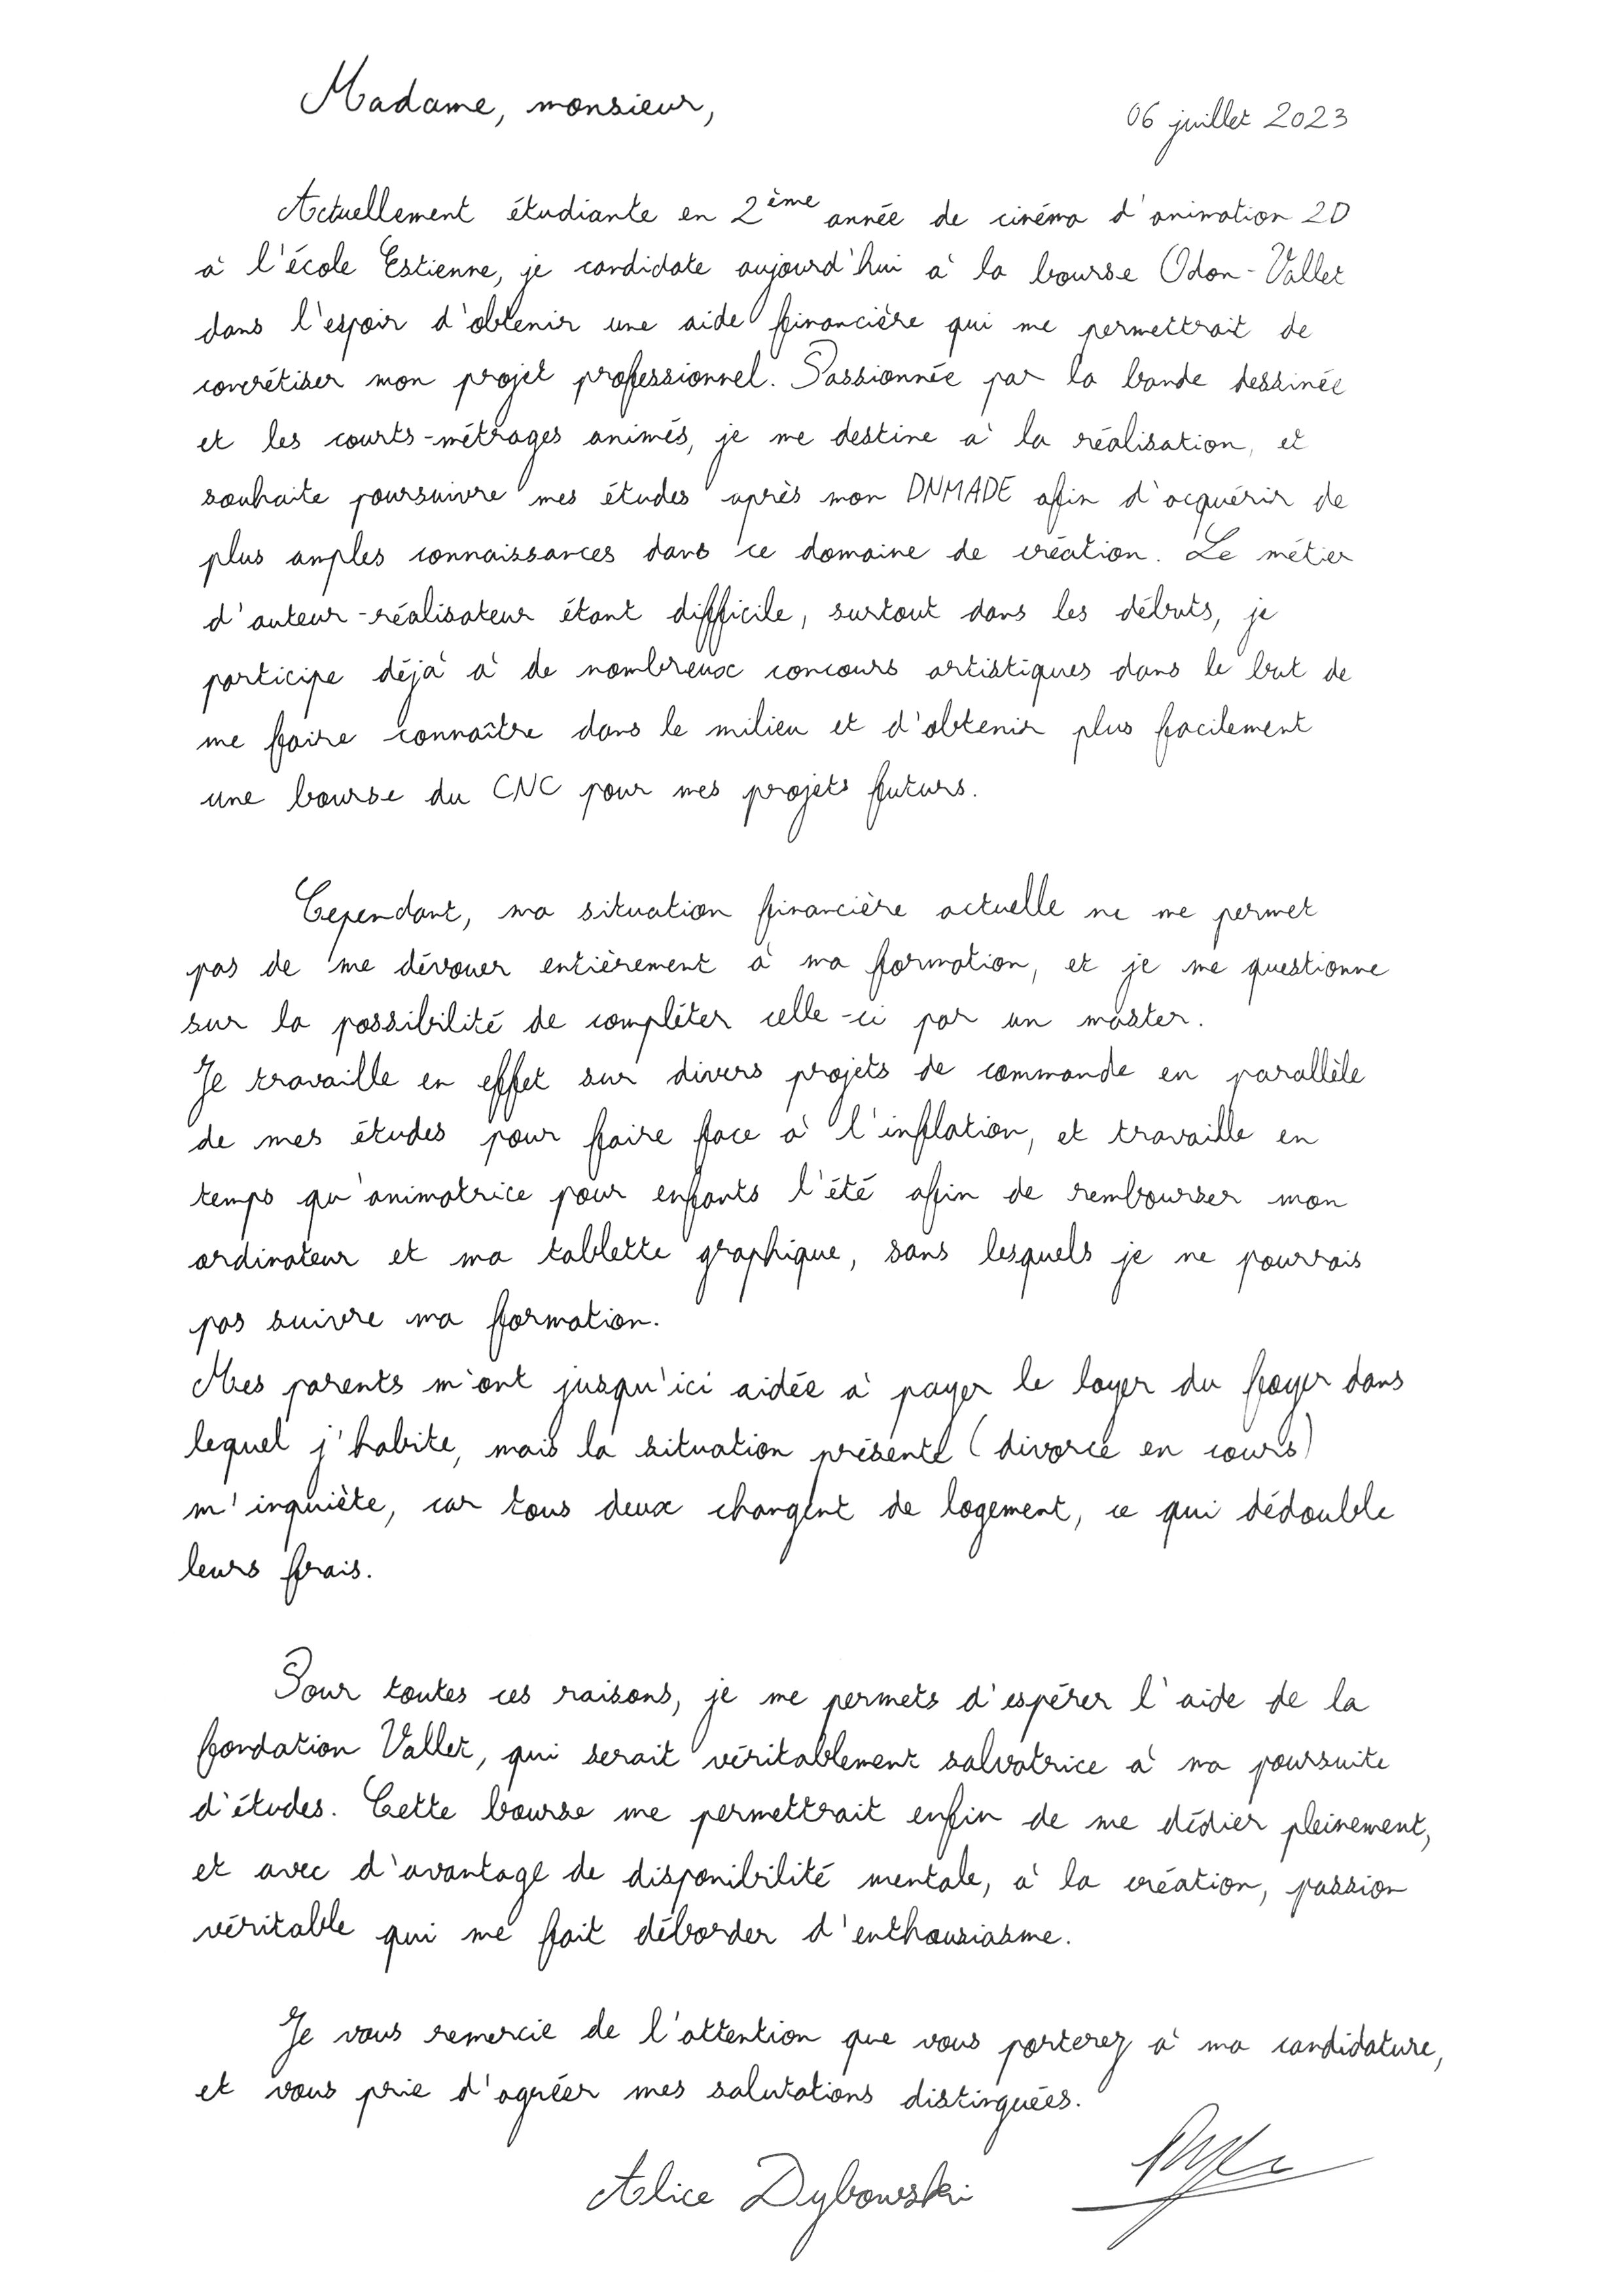 Madame, monsieur,
06 juillet 2023
Actuellement étudiante en 2ème année de cinéma d'animation 2D
à l'école Estienne, je candidate aujourd'hui à la bourse Odon-Vallet
dans l'espoir d'obtenir une aide financière qui me permettrait de
concrétiser mon projet professionnel. Passionnée par la bande dessinée
et les courts-métrages animés, je me destine à la réalisation, et
souhaite poursuivre mes études après mon DNMADE afin d'acquérir de
plus amples connaissances dans ce domaine de création. Le métier
d'auteur-réalisateur étant difficile, surtout dans les débuts, je
participe déjà à de nombreux concours artistiques dans le but de
me faire connaître dans le milieu et d'obtenir plus facilement
une bourse du CNC pour mes projets futurs.
Cependant, ma situation financière actuelle ne me permet
pas de me dévouer entièrement à ma formation, et je me questionne
sur la possibilité de compléter celle-ci par un master.
Je travaille en effet sur divers projets de commande en parallèle
de mes études pour faire face à l'inflation, et travaille en
temps qu'animatrice pour enfants l'été afin de rembourser mon
ordinateur et ma tablette graphique, sans lesquels je ne pourrais
pas suivre ma formation.
Mes parents m'ont jusqu'ici aidée à payer le loyer du foyer dans
lequel j'habite, mais la situation présente (divorce en cours)
m'inquiète, car tous deux changent de logement, ce qui dédouble
leurs frais.
Pour toutes ces raisons, je me permets d'espérer l'aide de la
fondation Vallet, qui serait véritablement salvatrice à ma poursuite
d'études. Cette bourse me permettrait enfin de me dédier pleinement,
et avec d'avantage de disponibilité mentale, à la création, passion
véritable qui me fait déborder d'enthousiasme.
Je vous remercie de l'attention que vous porterez à ma candidature,
et vous prie d'agréer mes salutations distinguées.
Alice Dybowski